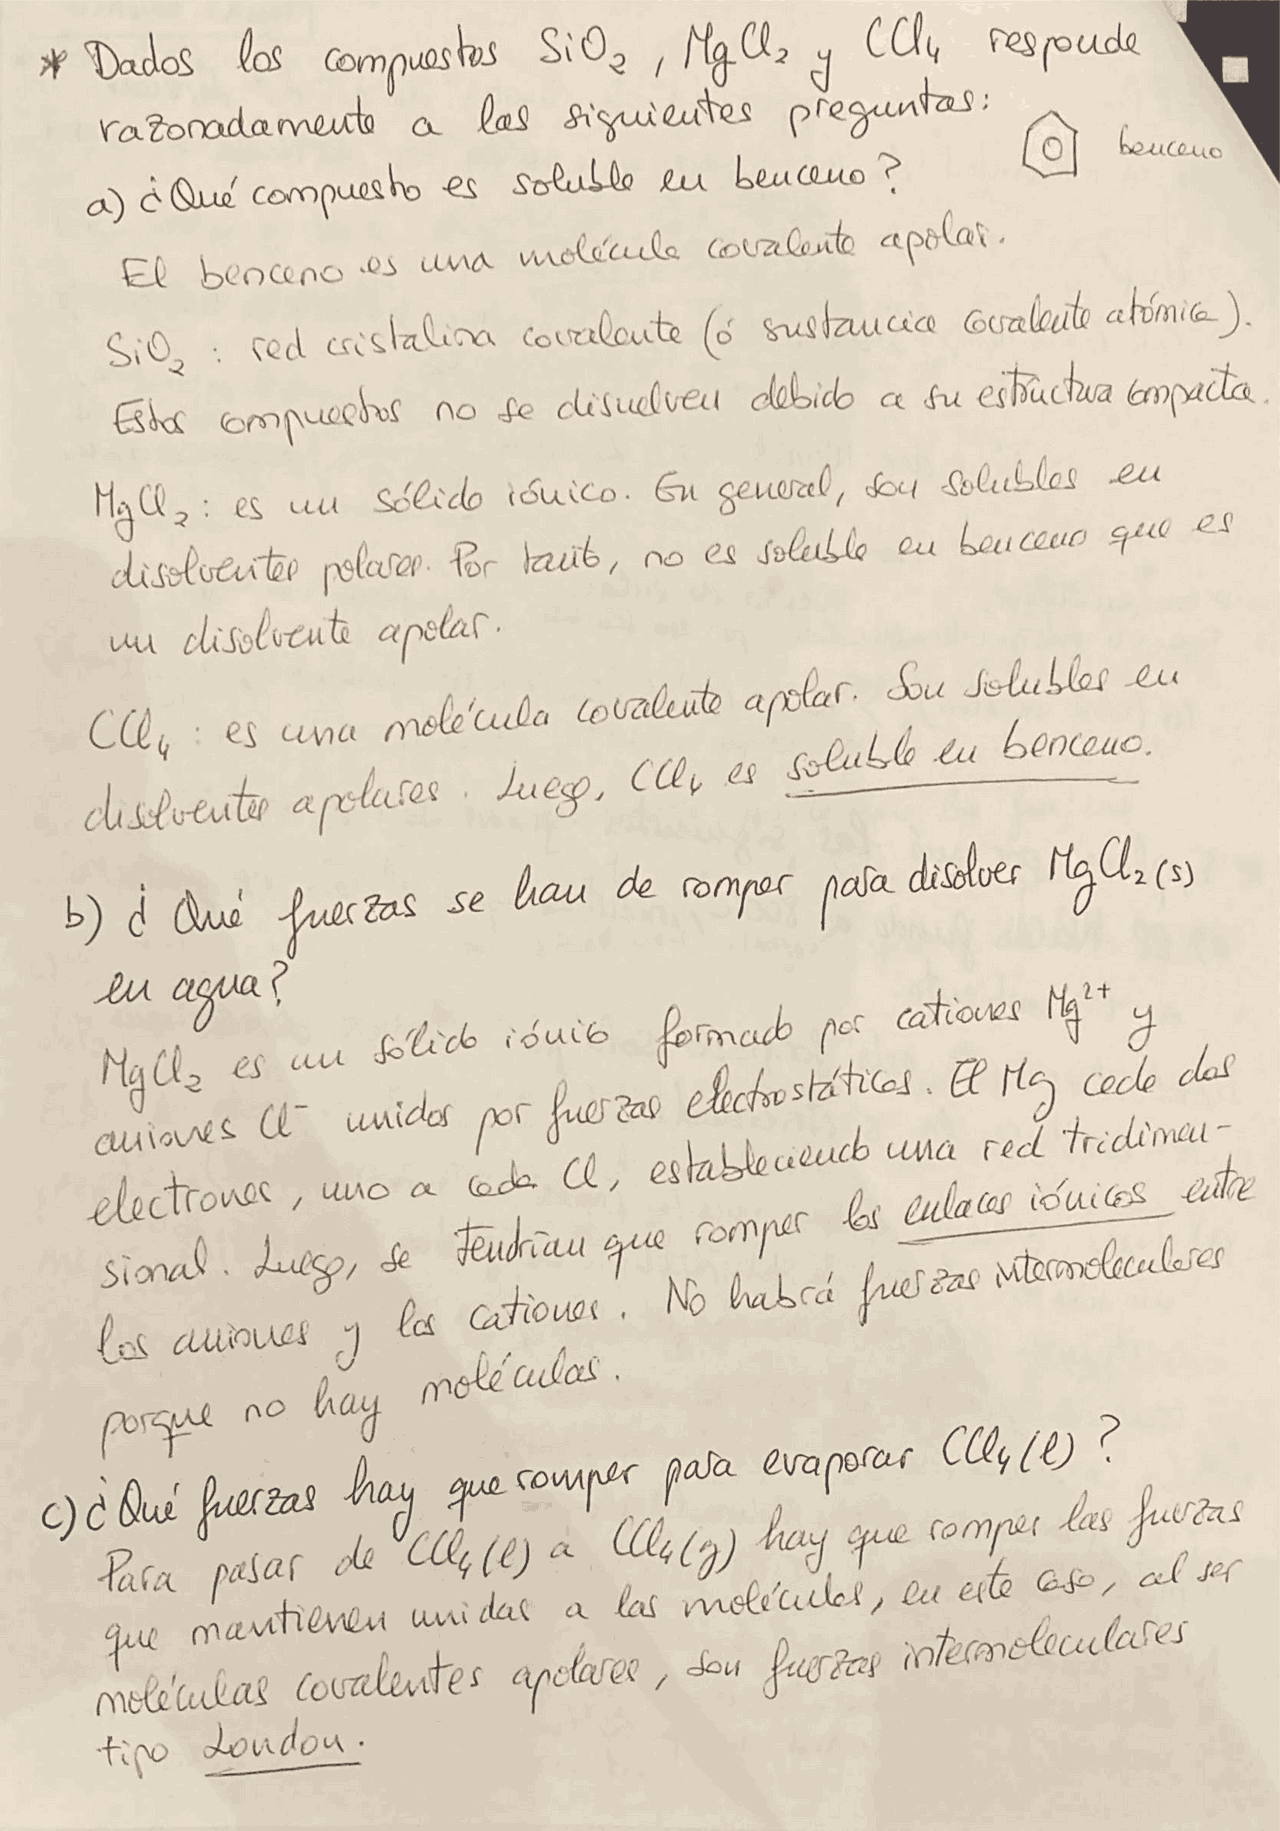 * Dados los compuestos SiO₂, MgCl₂ y CCl₄ responde
razonadamente a las siguientes preguntas:
benceno
a) ¿Qué compuesto es soluble en benceno?
El benceno es una molécula covalente apolar.
SiO₂ : red cristalina covalente (ó sustancia covalente atómica).
Estos compuestos no se disuelven debido a su estructura compacta.
MgCl₂ : es un sólido iónico. En general, son solubles en
disolventes polares. Por tanto, no es soluble en benceno que es
un disolvente apolar.
CCl₄ : es una molécula covalente apolar. Son solubles en
disolventes apolares. Luego, CCl₄ es soluble en benceno.
b) ¿Qué fuerzas se han de romper para disolver MgCl₂(s)
en agua?
MgCl₂ es un sólido iónico formado por cationes Mg²⁺ y
aniones Cl⁻ unidos por fuerzas electrostáticas. El Mg cede dos
electrones, uno a cada Cl, estableciendo una red tridimen-
sional. Luego, se tendrían que romper los enlaces iónicos entre
los aniones y los cationes. No habrá fuerzas intermoleculares
porque no hay moléculas.
c) ¿Qué fuerzas hay que romper para evaporar CCl₄(l)?
Para pasar de CCl₄(l) a CCl₄(g) hay que romper las fuerzas
que mantienen unidas a las moléculas, en este caso, al ser
moléculas covalentes apolares, son fuerzas intermoleculares
tipo London.